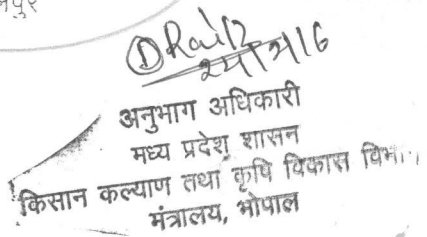 अनुभाग अधिकारी
मध्य प्रदेश शासन
किसान कल्याण तथा कृषि विकास
मंत्रालय, भोपाल